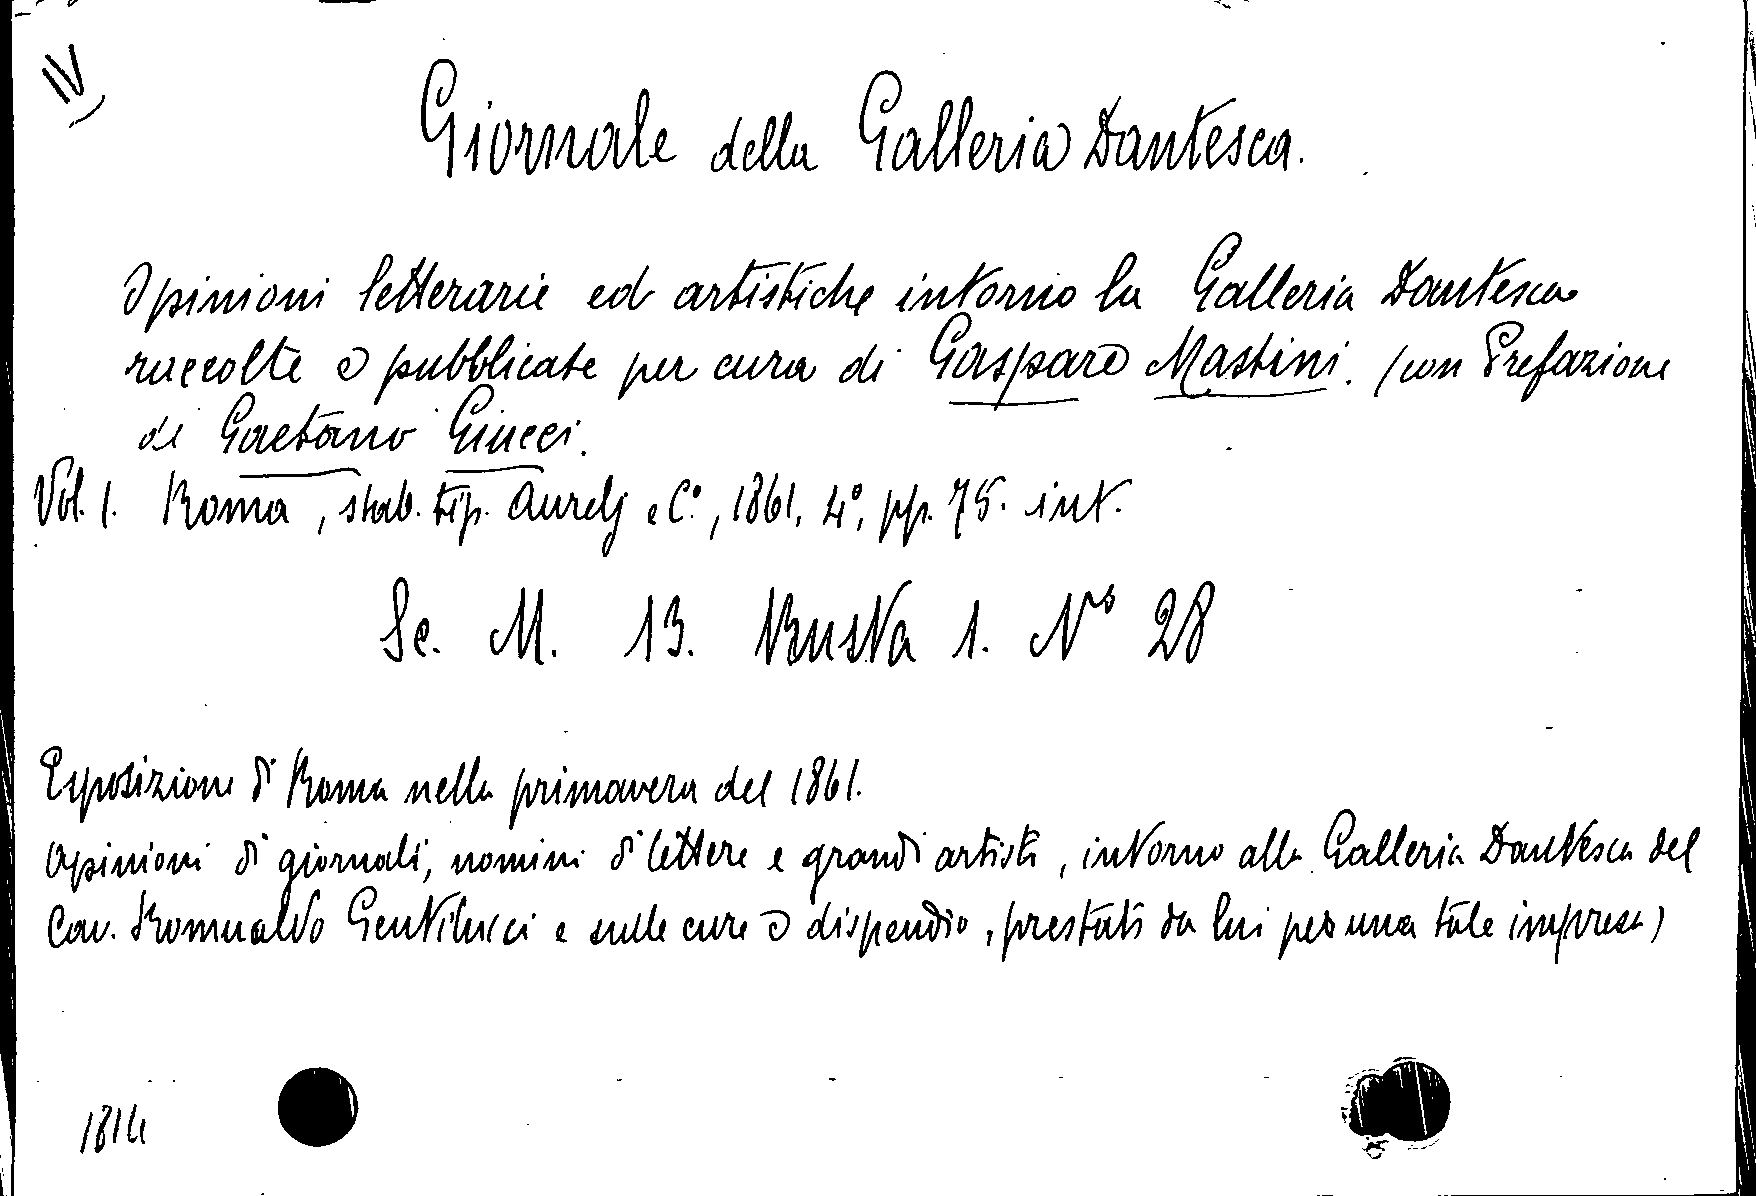 IV
Giornale della Galleria Dantesca.
Opinioni letterarie ed artistiche intorno la Galleria Dantesca
raccolte e pubblicate per cura di Gaspare Mastini. (con Prefazione
di Gaetano Giucci.
Vol. I. Roma, stab. tip. Aurelj e C.º, 1861, 4º, pp. 75. int.
Sc. M. 13. Busta 1. Nº 28
Esposizione di Roma nella primavera del 1861.
Opinioni di giornali, uomini di lettere e grandi artisti, intorno alla Galleria Dantesca del
Cav. Romualdo Gentilucci e sulle cure e dispendio, prestati da lui per una tale impresa)